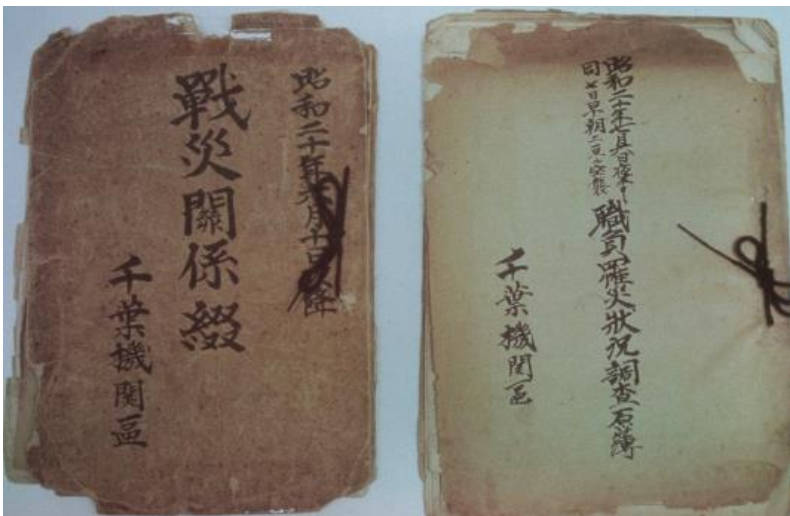 昭和二十年六月十日
戰災關係綴
千葉機関區
昭和二十年七月六日夜半ヨリ
同七日早朝ニ亘ル空襲
職員罹災狀況調査名簿
千葉機関區